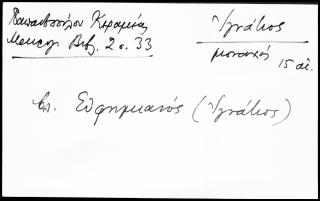 Παπαδοπούλου Κεραμέως
Μαυρογ. Βιβ. 2 σ. 33
Ἰγνάτιος
μοναχός
15 αἰ.
βλ. Εὐφημιανός (Ἰγνάτιος)